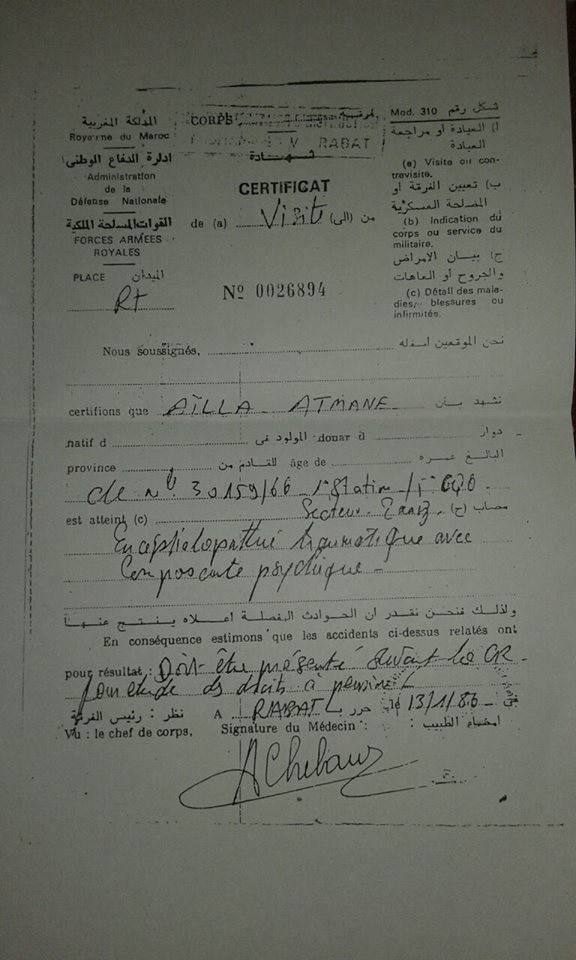 المملكة المغربية
Royaume du Maroc
ادارة الدفاع الوطني
Administration
de la
Défense Nationale
القوات المسلحة الملكية
FORCES ARMEES
ROYALES
PLACE الميدان
Rt
CORPS
V RABAT
شهادة
CERTIFICAT
de (a) Visite (الى) من
Nº 0026894
Mod. 310 شكل رقم
أ) العيادة او مراجعة
العيادة
(a) Visite ou con-
trevisite.
ب) تعيين الفرقة او
المصلحة العسكرية
(b) Indication du
corps ou service du
militaire.
ج) بيان الامراض
والجروح أو العاهات
(c) Détail des mala-
dies, blessures ou
infirmités.
Nous soussignés, نحن الموقعين اسفله
certifions que AILLA ATMANE نشهد بان
natif d المولود في douar d دوار
province القادم من âge de البالغ عمره
de nº 30159/66
est atteint (c) Secteur مصاب (ج)
Encephalopathie traumatique avec
Composante psychique -
ولذلك فنحن نقدر ان الحوادث المفصلة أعلاه ينتج عنها
En conséquence estimons que les accidents ci-dessus relatés ont
pour résultat : Doit être présenté devant la CR
pour étude des droits à pension
نظر : رئيس الفرقة A RABAT حرر ب le 13/1/86 في
Vu : le chef de corps, Signature du Médecin : امضاء الطبيب :
AChebaur